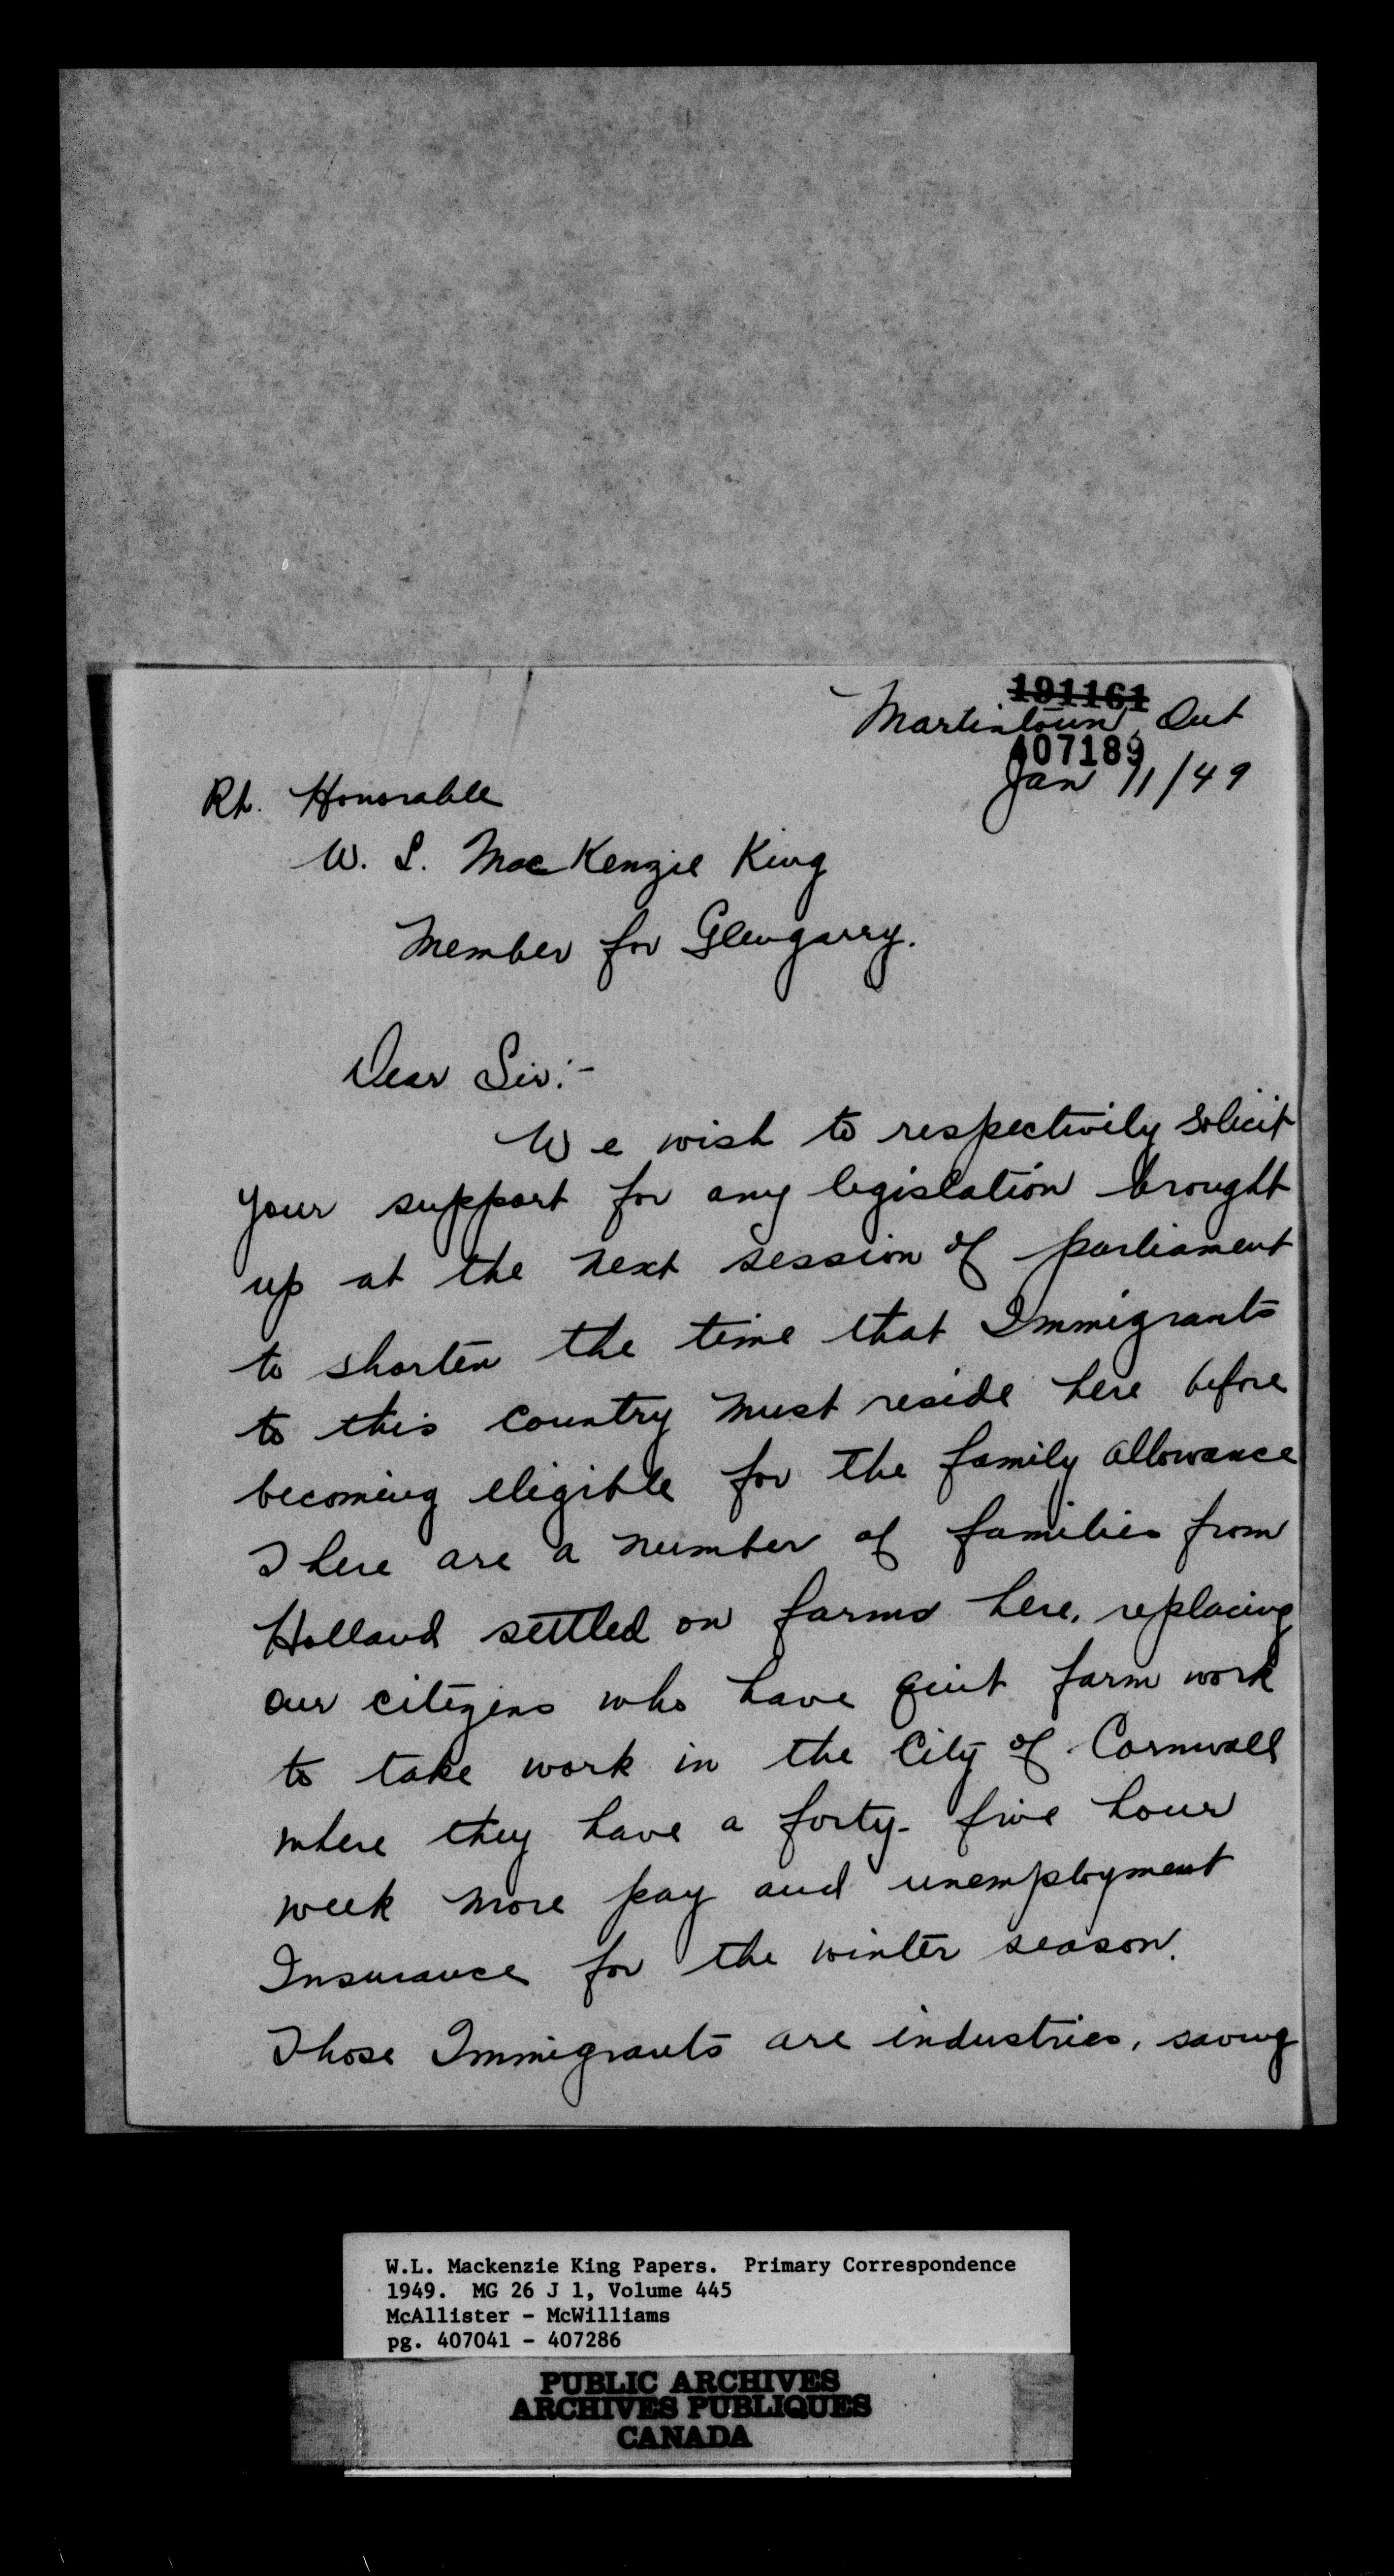 191161
Martintown, Ont
407189
Jan 11/49
Rt. Honorable
W. L. MacKenzie King
Member for Glengarry.
Dear Sir:-
We wish to respectivily solicit
your support for any legislation brought
up at the next session of parliament
to shorten the time that Immigrants
to this country must reside here before
becoming eligible for the family allowance
There are a number of families from
Holland settled on farms here, replacing
our citizens who have quit farm work
to take work in the City of Cornwall
where they have a forty-five hour
week more pay and unemployment
Insurance for the winter season.
Those Immigrants are industries, saving
W.L. Mackenzie King Papers. Primary Correspondence
1949. MG 26 J 1, Volume 445
McAllister - McWilliams
pg. 407041 - 407286
PUBLIC ARCHIVES
ARCHIVES PUBLIQUES
CANADA